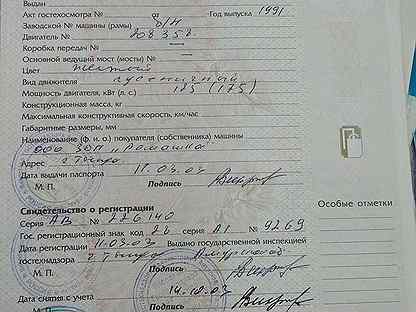 Выдан
Акт гостехосмотра № от Год выпуска 1991
Заводской № машины (рамы) б/н
Двигатель № 708358
Коробка передач № —
Основной ведущий мост (мосты) №
Цвет желтый
Вид движителя гусеничный
Мощность двигателя, кВт (л. с.) 185 (175)
Конструкционная масса, кг
Максимальная конструктивная скорость, км/час
Габаритные размеры, мм
Наименование (ф. и. о.) покупателя (собственника) машины
ООО ЗДП "Ромашка"
Адрес г. Тында
Дата выдачи паспорта 11.03.03
М. П. Подпись
Особые отметки
Свидетельство о регистрации
Серия АВ № 226140
Гос. регистрационный знак код 26 серия АТ № 9269
Дата регистрации 11.03.03 Выдано государственной инспекцией
гостехнадзора г. Тында Амурской обл
М. П. Подпись
14.12.03
Дата снятия с учета
М. П. Подпись